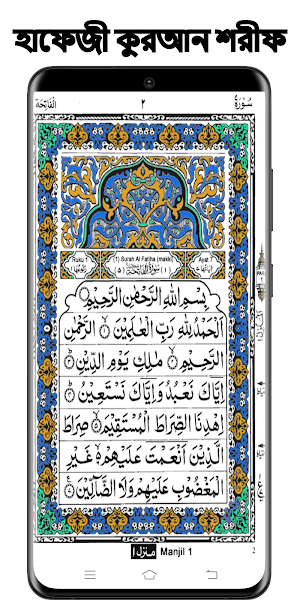 হাফেজী কুরআন শরীফ
اَلْفَاتِحَة ٢ سُوْرَةُ
Ruku 1 (1) Surah Al Fatiha (makki) Ayat 7
(٥) سُوْرَةُ الْفَاتِحَةِ (١)
بِسْمِ اللهِ الرَّحْمٰنِ الرَّحِيْمِ
اَلْحَمْدُ لِلّٰهِ رَبِّ الْعٰلَمِيْنَ ۙ۝١ الرَّحْمٰنِ
الرَّحِيْمِ ۙ۝٢ مٰلِكِ يَوْمِ الدِّيْنِ ؕ۝٣
اِيَّاكَ نَعْبُدُ وَاِيَّاكَ نَسْتَعِيْنُ ؕ۝٤
اِهْدِنَا الصِّرَاطَ الْمُسْتَقِيْمَ ۙ۝٥ صِرَاطَ
الَّذِيْنَ اَنْعَمْتَ عَلَيْهِمْ ۙ۝٦ غَيْرِ
الْمَغْضُوْبِ عَلَيْهِمْ وَلَا الضَّآلِّيْنَ ۝٧
منزل ١ Manjil 1 2